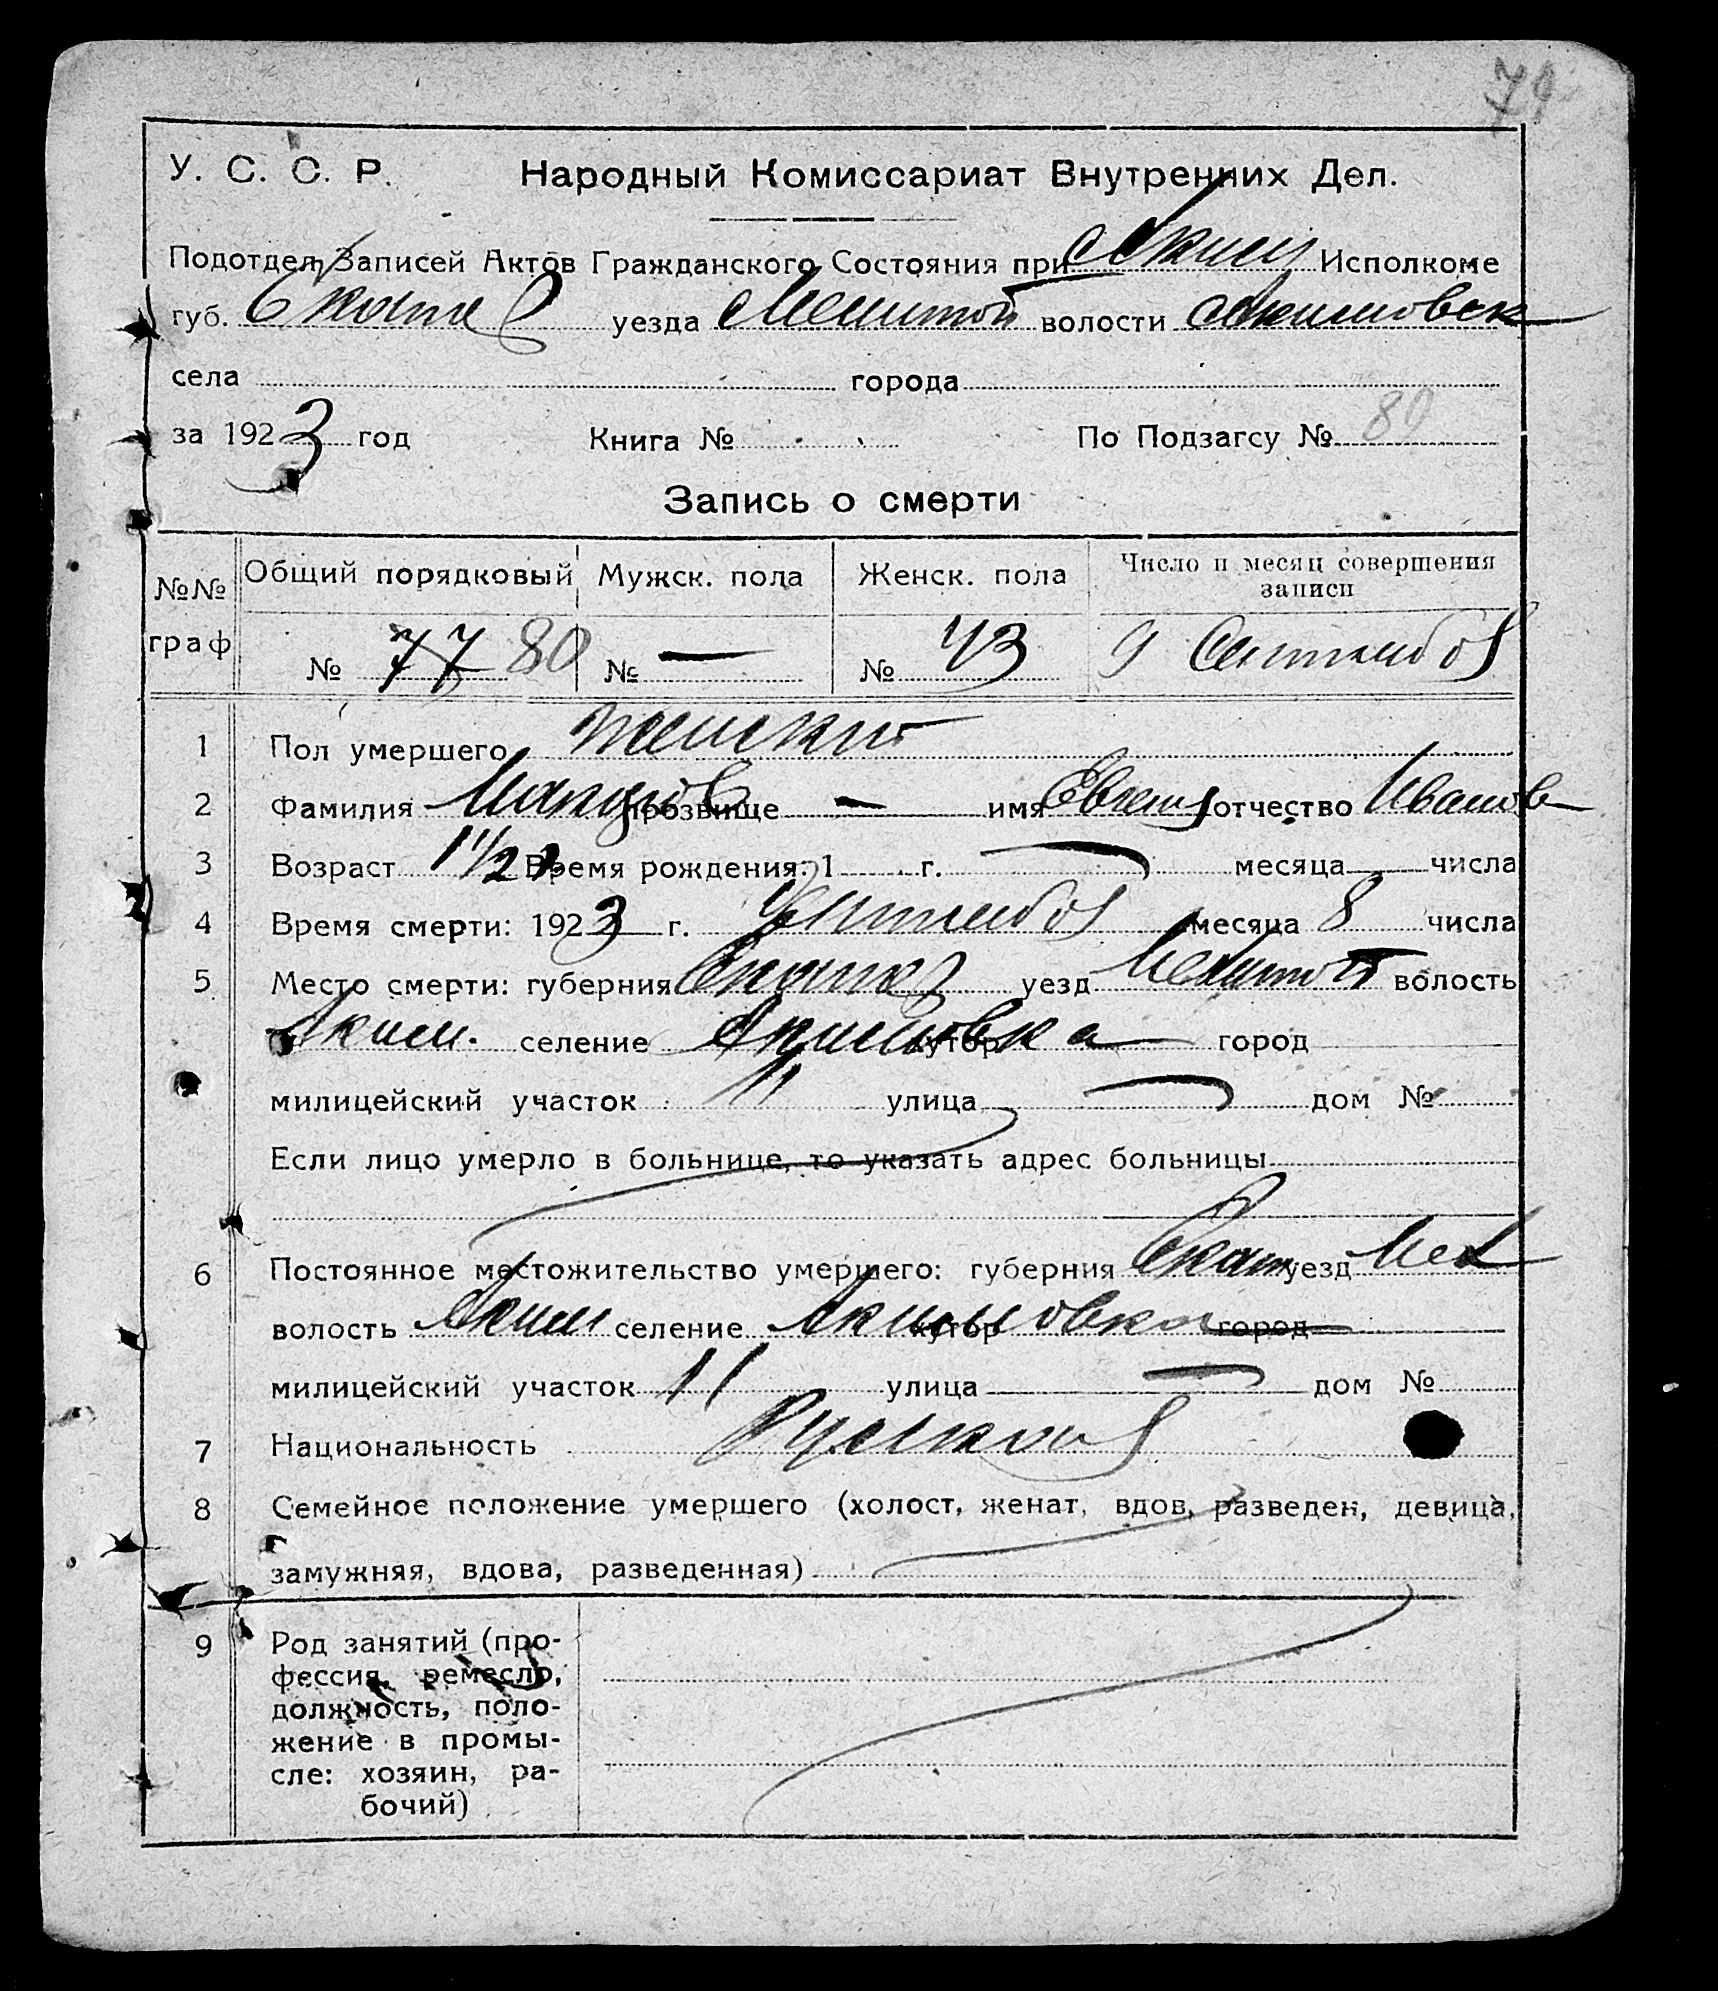 79
У. С. С. Р. Народный Комиссариат Внутренних Дел.
Подотдел Записей Актов Гражданского Состояния при Аким Исполкоме
губ. Екате уезда Мелитоп волости Акимовск
села города
за 1923 год Книга № По Подзагсу № 80
Запись о смерти
№№ граф Общий порядковый Мужск. пола Женск. пола Число и месяц совершения записи
№ 77 80 № — № 43 9 Сентября
1 Пол умершего женский
2 Фамилия прозвище — имя Евген отчество Иванов
3 Возраст 1 1/2 г. Время рождения: 1 г. — месяца числа
4 Время смерти: 1923 г. Сентября месяца 8 числа
5 Место смерти: губерния Екат уезд Мелитоп волость
Аким. селение Акимовка хутор город
милицейский участок 11 улица — дом №
Если лицо умерло в больнице, то указать адрес больницы
6 Постоянное местожительство умершего: губерния Екат уезд Мел
волость Аким селение Акимовка хутор город
милицейский участок 11 улица — дом №
7 Национальность Русская
8 Семейное положение умершего (холост, женат, вдов, разведен, девица,
замужняя, вдова, разведенная)
9 Род занятий (про-
фессия, ремесло,
должность, поло-
жение в промы-
сле: хозяин, ра-
бочий)